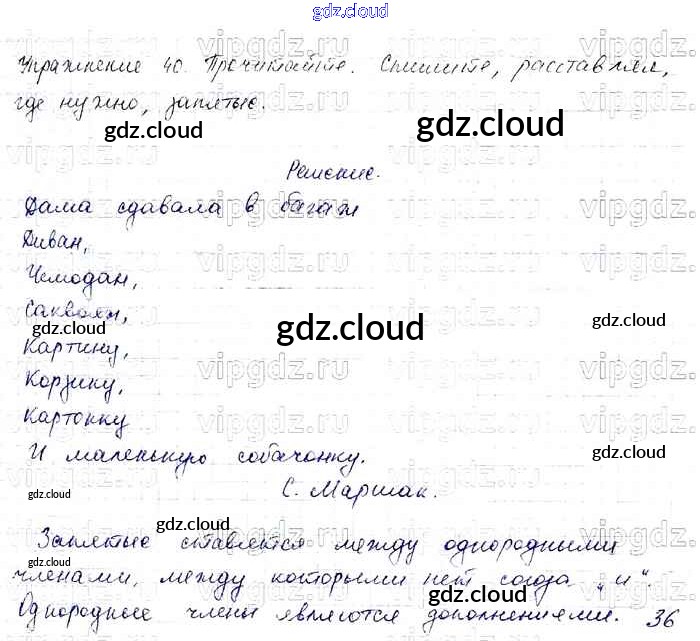 gdz.cloud
Упражнение 40. Прочитайте. Спишите, расставляя,
где нужно, запятые.
gdz.cloud
gdz.cloud
Решение.
gdz.cloud
Дама сдавала в багаж
Диван,
Чемодан,
Саквояж,
gdz.cloud
gdz.cloud
gdz.cloud
Картину,
Корзинку,
Картонку
И маленькую собачонку.
gdz.cloud
gdz.cloud
С. Маршак.
gdz.cloud
Запятые ставятся между однородными
членами, между которыми нет союза „и“.
gdz.cloud
gdz.cloud
Однородные члены являются дополнениями. 36